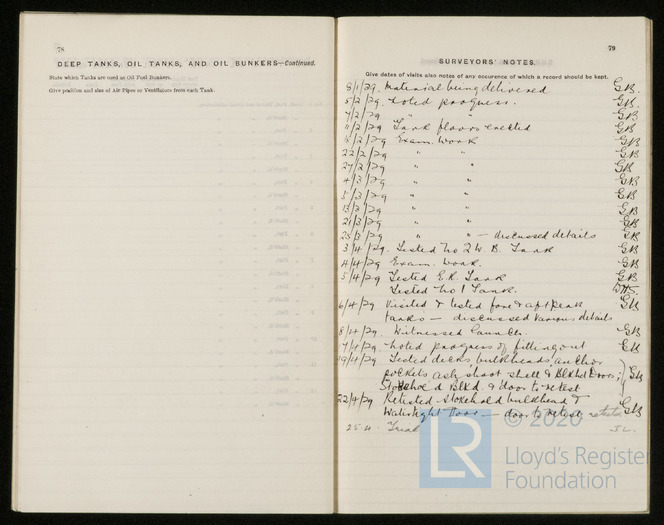 78
DEEP TANKS, OIL TANKS, AND OIL BUNKERS—Continued.
State which Tanks are used as Oil Fuel Bunkers.
Give position and size of Air Pipes or Ventilators from each Tank.
79
SURVEYORS' NOTES.
Give dates of visits also notes of any occurence of which a record should be kept.
8/1/29. Material being delivered GB.
5/2/29. Noted progress. GB.
7/2/29 " " GB
11/2/29 Tank floors erected GB
/2/29 Exam. work GB
22/2/29 " " GB
27/2/29 " " GB
4/3/29 " " GB
5/3/29 " " GB
13/3/29 " " GB
21/3/29 " " GB
25/3/29 " " — discussed details GB
3/4/29. Tested No 2 W. B. Tank GB
4/4/29 Exam. work. GB
5/4/29 Tested E.R. Tank GB
Tested No 1 Tank.
6/4/29 Visited & tested fore & aft peak GB
tanks — discussed various details
8/4/29. Witnessed Launch. GB
17/4/29 Noted progress of fitting out GB
19/4/29 Tested decks, bulkheads, anchor
pockets ash shoot shell & Blkhd Doors; GB
Stokehold Blkd & door to retest
22/4/29 Retested Stokehold bulkhead &
Watertight Door — door to retest GB
25.4. Trial J.L.
LR
© 2020
Lloyd's Register
Foundation